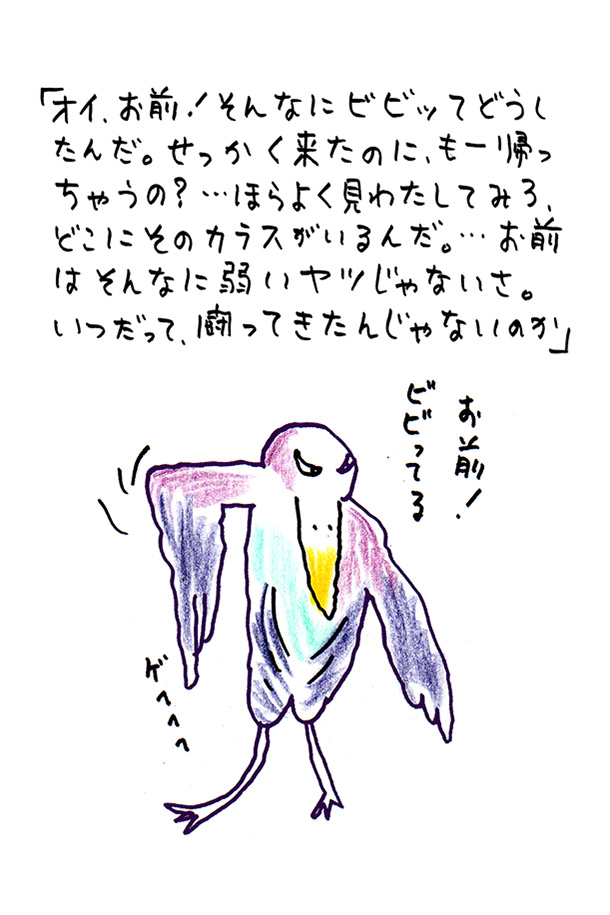 「オイ、お前！そんなにビビッてどうし
たんだ。せっかく来たのに、もー帰っ
ちゃうの？…ほらよく見わたしてみろ、
どこにそのカラスがいるんだ。…お前
はそんなに弱いヤツじゃないさ。
いつだって、闘ってきたんじゃないのか」
お前！
ビビってる
ゲへへへ